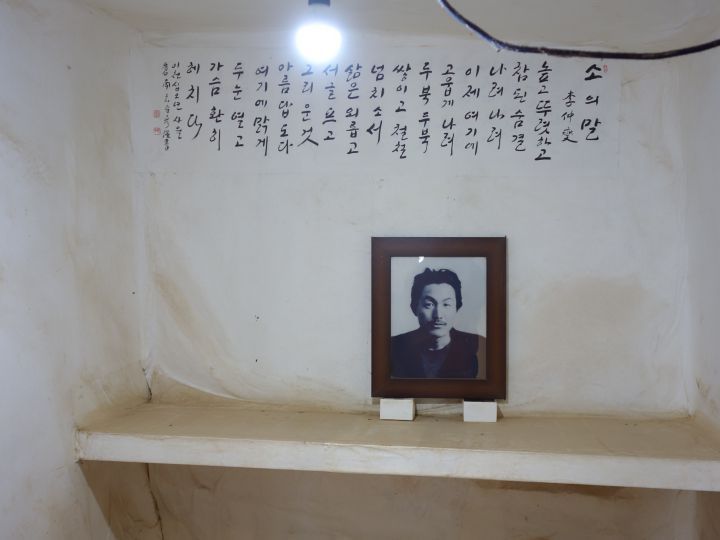 소의 말
李仲燮
높고 뚜렷하고
참된 숨결
나려 나려
이제 여기에
고웁게 나려
두북 두북
쌓이고 철철
넘치소서
삶은 외롭고
서글프고
그리운 것
아름답도다
여기에 맑게
두 눈 열고
가슴 환히
헤치다